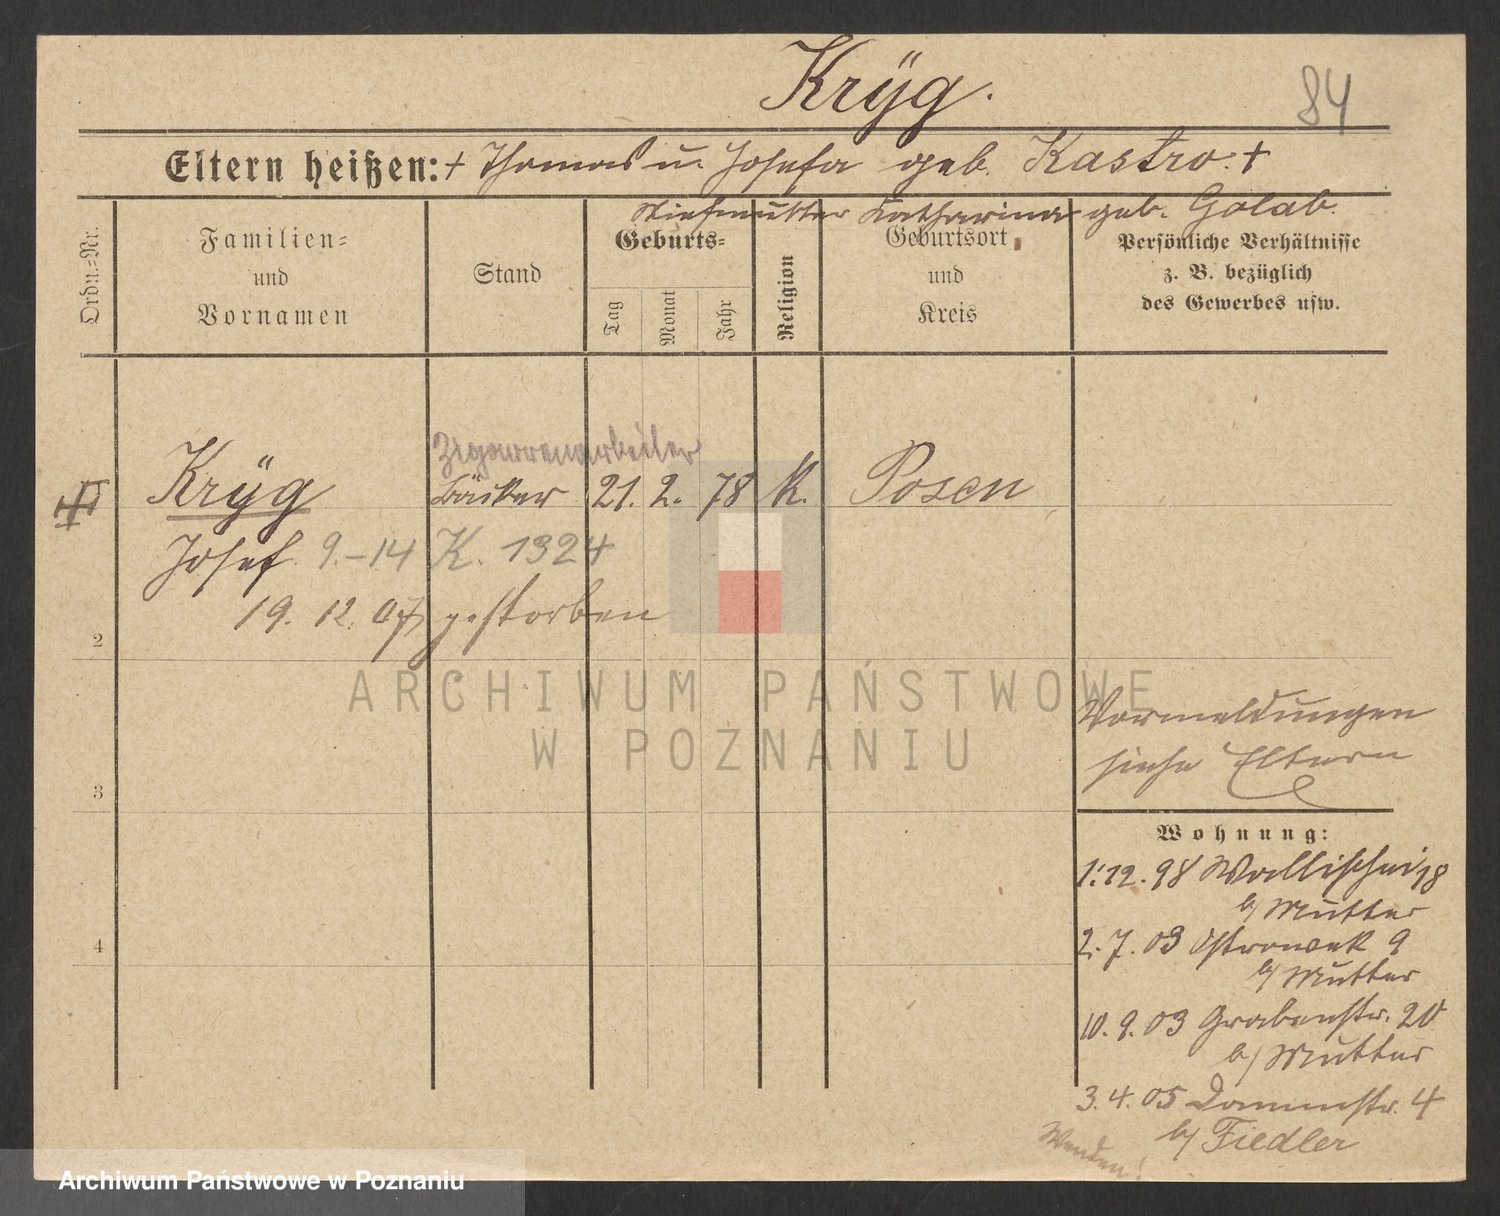 Krÿg.
84
Eltern heißen: + Thomas u. Josefa geb. Kastro. +
Stiefmutter Katharina geb. Golab.
Ordn.=Nr.
Familien=
und
Vornamen
Stand
Geburts=
Tag
Monat
Jahr
Religion
Geburtsort
und
Kreis
Persönliche Verhältnisse
z. B. bezüglich
des Gewerbes usw.
Zigarrenarbeiter
Krÿg Bäcker 21. 2. 78 K. Posen
Josef. 9.-14 K. 1324
19. 12. 07 gestorben
2
ARCHIWUM PAŃSTWOWE
W POZNANIU
Vormeldungen
siehe Eltern
3
Wohnung:
1.12.98 Wallischei 18
b/ Mutter
2.7.03 Ostrowek 9
b/ Mutter
4
10.9.03 Grabenstr. 20
b/ Mutter
3.4.05 Dammstr. 4
b/ Fiedler
Wenden!
Archiwum Państwowe w Poznaniu